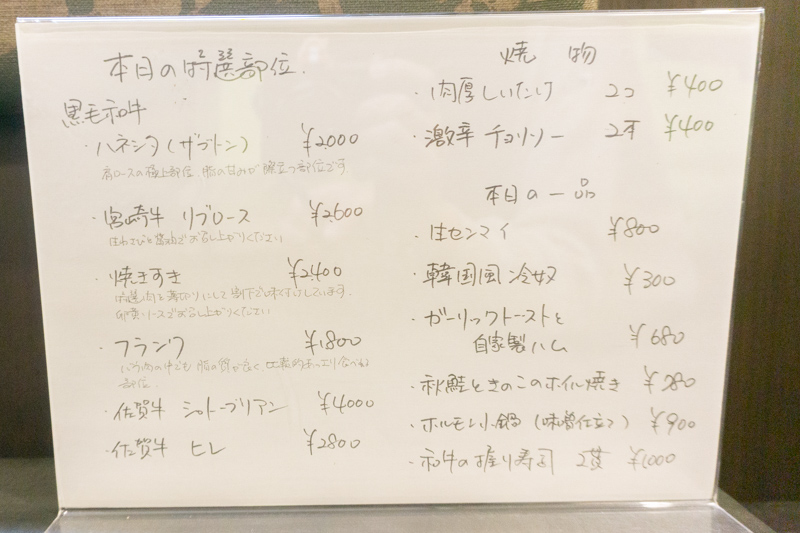 本日の特選部位
黒毛和牛
・ハネシタ(ザブトン) ¥2000
肩ロースの極上部位、脂の甘みが際立つ部位です。
・宮崎牛 リブロース ¥2600
生わさびと醤油でお召し上がりください
・焼きすき ¥2400
肉を薄切りにして割下で味つけしています。
卵黄ソースでお召し上がりください
・フランク ¥1800
バラ肉の中でも 脂の質が良く、比較的あっさり食べれる
部位。
・佐賀牛 シャトーブリアン ¥4000
・佐賀牛 ヒレ ¥2800
焼物
・肉厚しいたけ 2コ ¥400
・激辛 チョリソー 2本 ¥400
本日の一品
・生センマイ ¥800
・韓国風冷奴 ¥300
・ガーリックトーストと
自家製ハム ¥680
・秋鮭ときのこのホイル焼き ¥780
・ホルモン小鍋(味噌仕立て) ¥900
・和牛の握り寿司 2貫 ¥1000